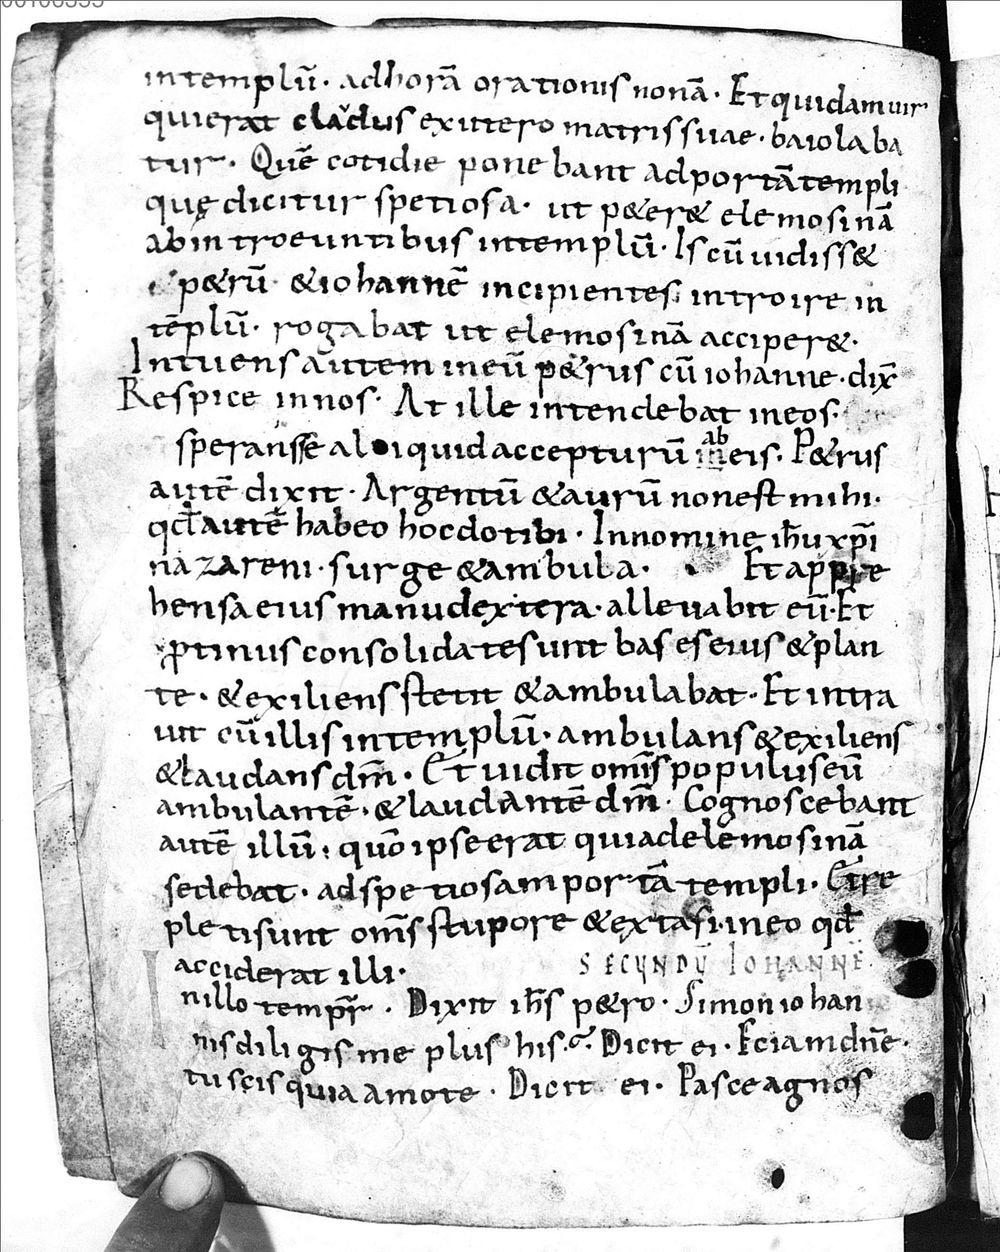 00106335
in templū· ad horā orationis nonā· Et quidam uir
qui erat cladus ex utero matris suae· baiolaba
tur· Quē cotidie ponebant ad portā templi
quę dicitur spetiosa· ut p&er& elemosinā
ab introeuntibus in templū· Is cū uidiss&
p&rū &iohannē incipientes introire in
tēplū· rogabat ut elemosinā acciper&·
Intuens autem in eū p&rus cū iohanne· dix̄
Respice in nos· At ille intendebat in eos·
speransse aliquid accepturū ab eis· P&rus
autē dixit· Argentū &aurū non est mihi·
qđ autē habeo hoc do tibi· In nomine ih̄u xp̄i
nazareni· surge &ambula· Et appre
hensa eius manu dextera· alleuabit eū· Et
ꝓtinus consolidate sunt bases eius &plan
te· &exiliens stetit &ambulabat· Et intra
uit cū illis in templū· ambulans &exiliens
&laudans dm̄· Et uidit omīs populus eū
ambulantē· &laudantē dm̄· Cognoscebant
autē illū· quō ipse erat qui ad elemosinā
sedebat· ad spetiosam portā templi· Et re
pleti sunt omīs stupore &extasi· in eo qđ
acciderat illi·
SECUNDŪ IOHANNĒ
In illo tempr̄· Dixit ih̄s p&ro· Simon iohan
nis diligis me plus his· Dicit ei· Eciam dn̄e·
tu scis quia amo te· Dicit ei· Pasce agnos